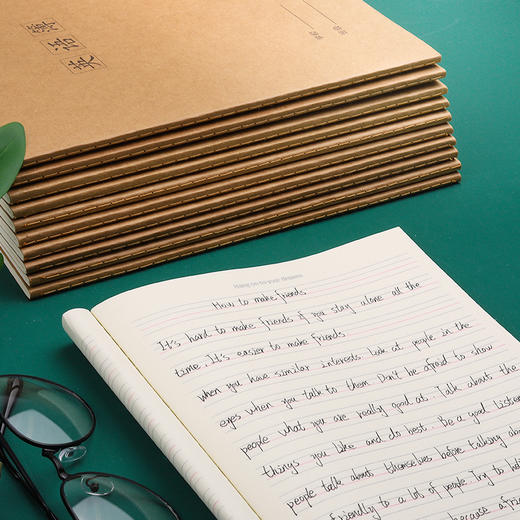 英语簿
Hang on to your dreams
How to make friends
It's hard to make friends if you stay alone all the
time. It's easier to make friends
when you have similar interests. Look at people in the
eyes when you talk to them. Don't be afraid to show
people what you are really good at. Talk about the
things you like and do best. Be a good listener
people talk about themselves before talking abou
friendly to a lot of people. Try to
because a